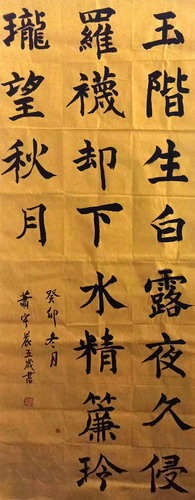 玉階生白露夜久侵
羅襪却下水精簾玲
瓏望秋月
癸卯冬月
蕭宇晨五歲書